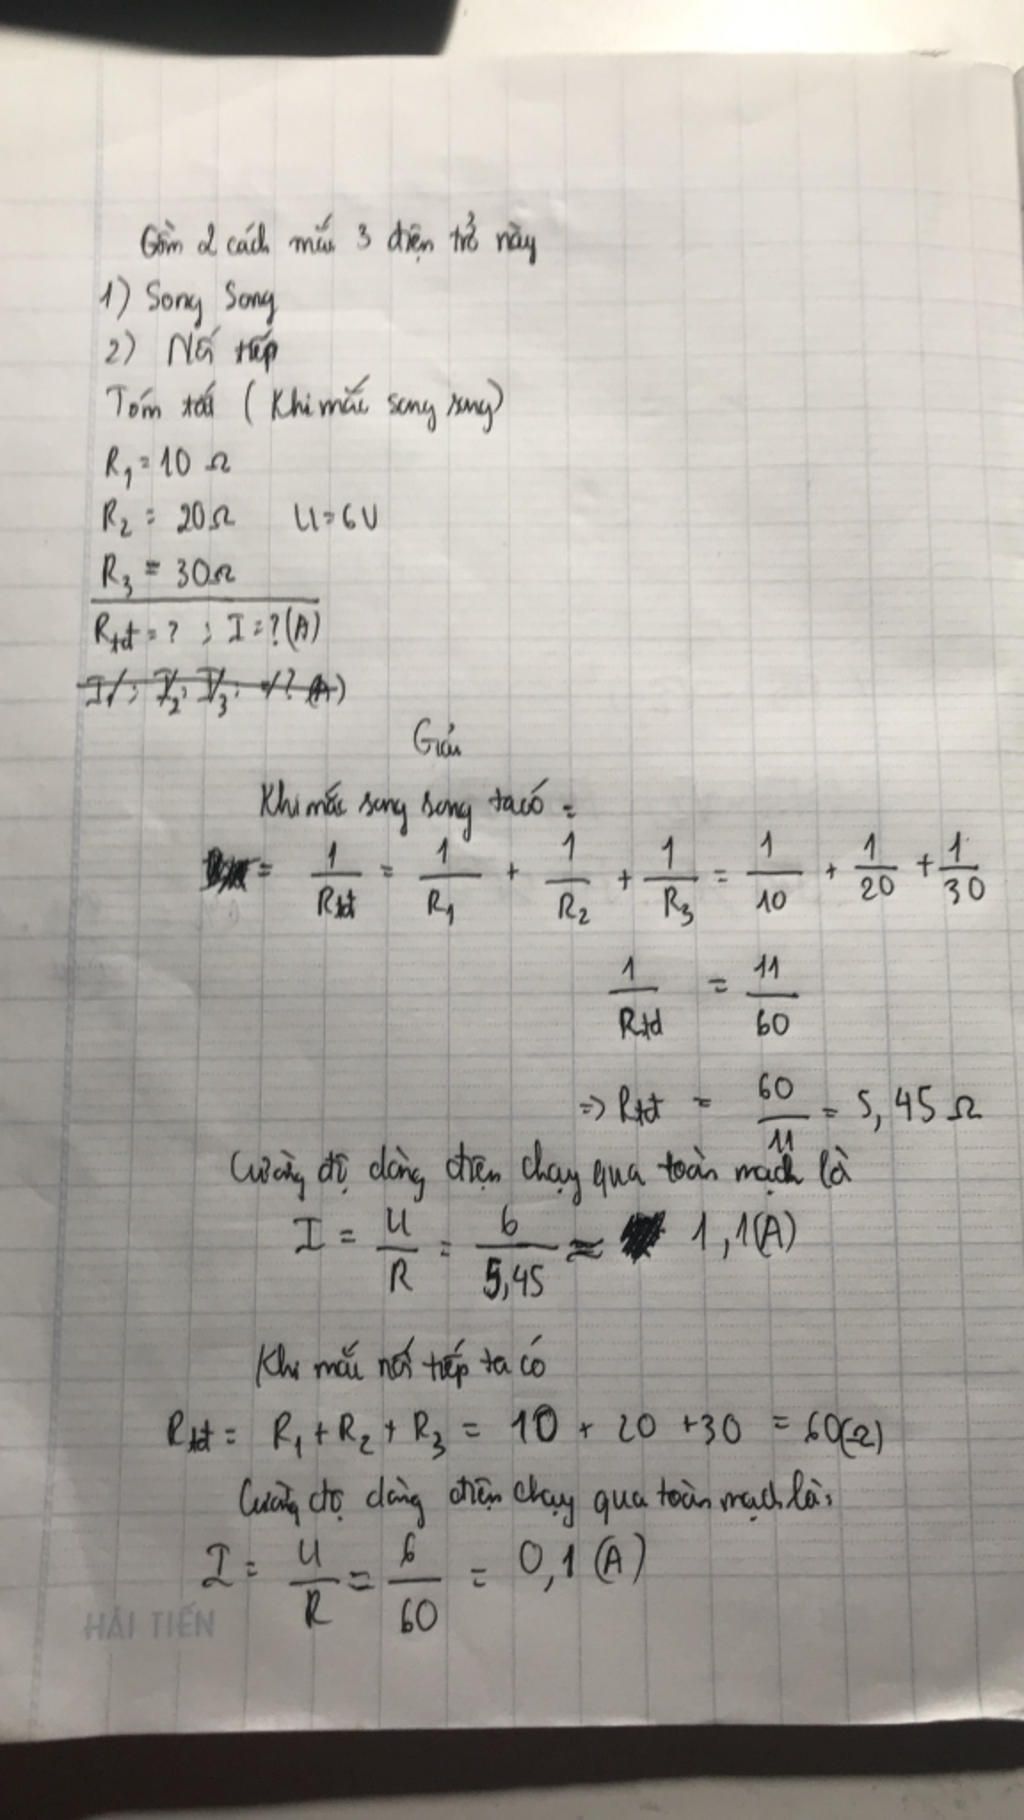 Gồm 2 cách mắc 3 điện trở này
1) Song Song
2) Nối tiếp
Tóm tắt ( Khi mắc song song)
R₁ = 10 Ω
R₂ = 20Ω U = 6V
R₃ = 30Ω
Rtđ = ? ; I = ? (A)
I₁; I₂; I₃; = ? (A)
Giải
Khi mắc song song ta có =
= 1/Rtđ = 1/R₁ + 1/R₂ + 1/R₃ = 1/10 + 1/20 + 1/30
1/Rtđ = 11/60
=> Rtđ = 60/11 = 5,45 Ω
Cường độ dòng điện chạy qua toàn mạch là
I = U/R = 6/5,45 ≈ 1,1(A)
Khi mắc nối tiếp ta có
Rtđ = R₁ + R₂ + R₃ = 10 + 20 + 30 = 60(Ω)
Cường độ dòng điện chạy qua toàn mạch là:
I = U/R = 6/60 = 0,1 (A)
HẢI TIẾN